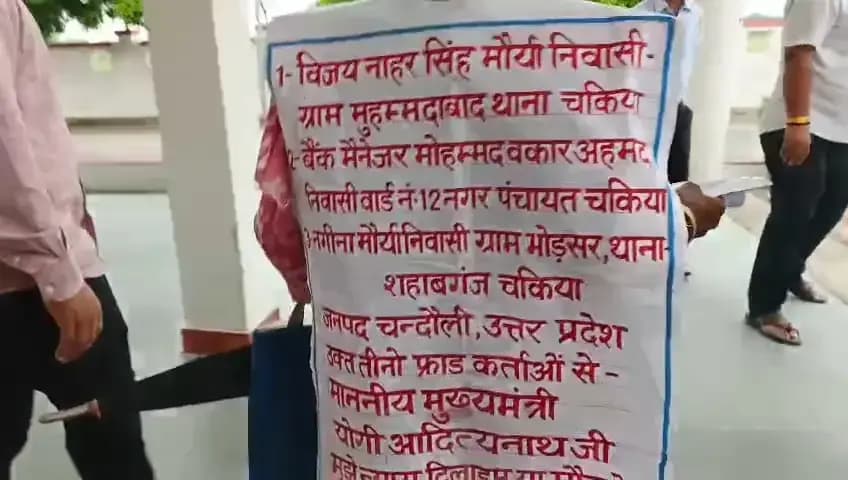 1- विजय नाहर सिंह मौर्या निवासी-
ग्राम मुहम्मदाबाद थाना चकिया
2- बैंक मैनेजर मोहम्मद वकार अहमद
निवासी वार्ड नं.12 नगर पंचायत चकिया
3-नगीना मौर्या निवासी ग्राम मोड़सर, थाना-
शहाबगंज चकिया
जनपद चन्दौली, उत्तर प्रदेश
उक्त तीनो फ्राड कर्ताओं से -
माननीय मुख्यमंत्री
योगी आदित्यनाथ जी
मुझे न्याय दिलाइए या